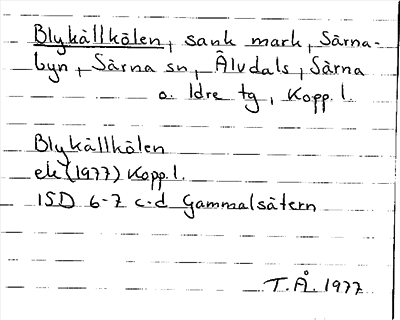 Blykällkölen, sank mark, Särna-
byn, Särna sn, Älvdals, Särna
o. Idre tg, Kopp. l.
Blykällkölen
ek (1977) Kopp. l.
15D 6-7 c-d Gammalsätern
T.Å. 1977